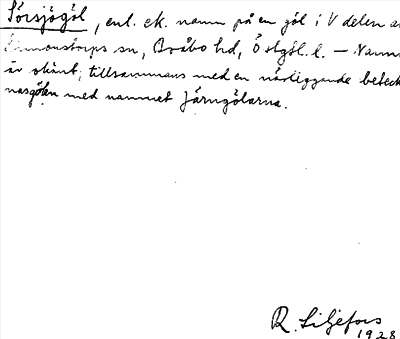 Sörsjögöl, enl. ek. namn på en göl i V delen a
Simonstorps sn, Bråbo hd, Östgöl. l. — Namn
är okänt; tillsammans med en närliggande beteck
nas gölen med namnet Järngölarna.
R. Liljefors
1928